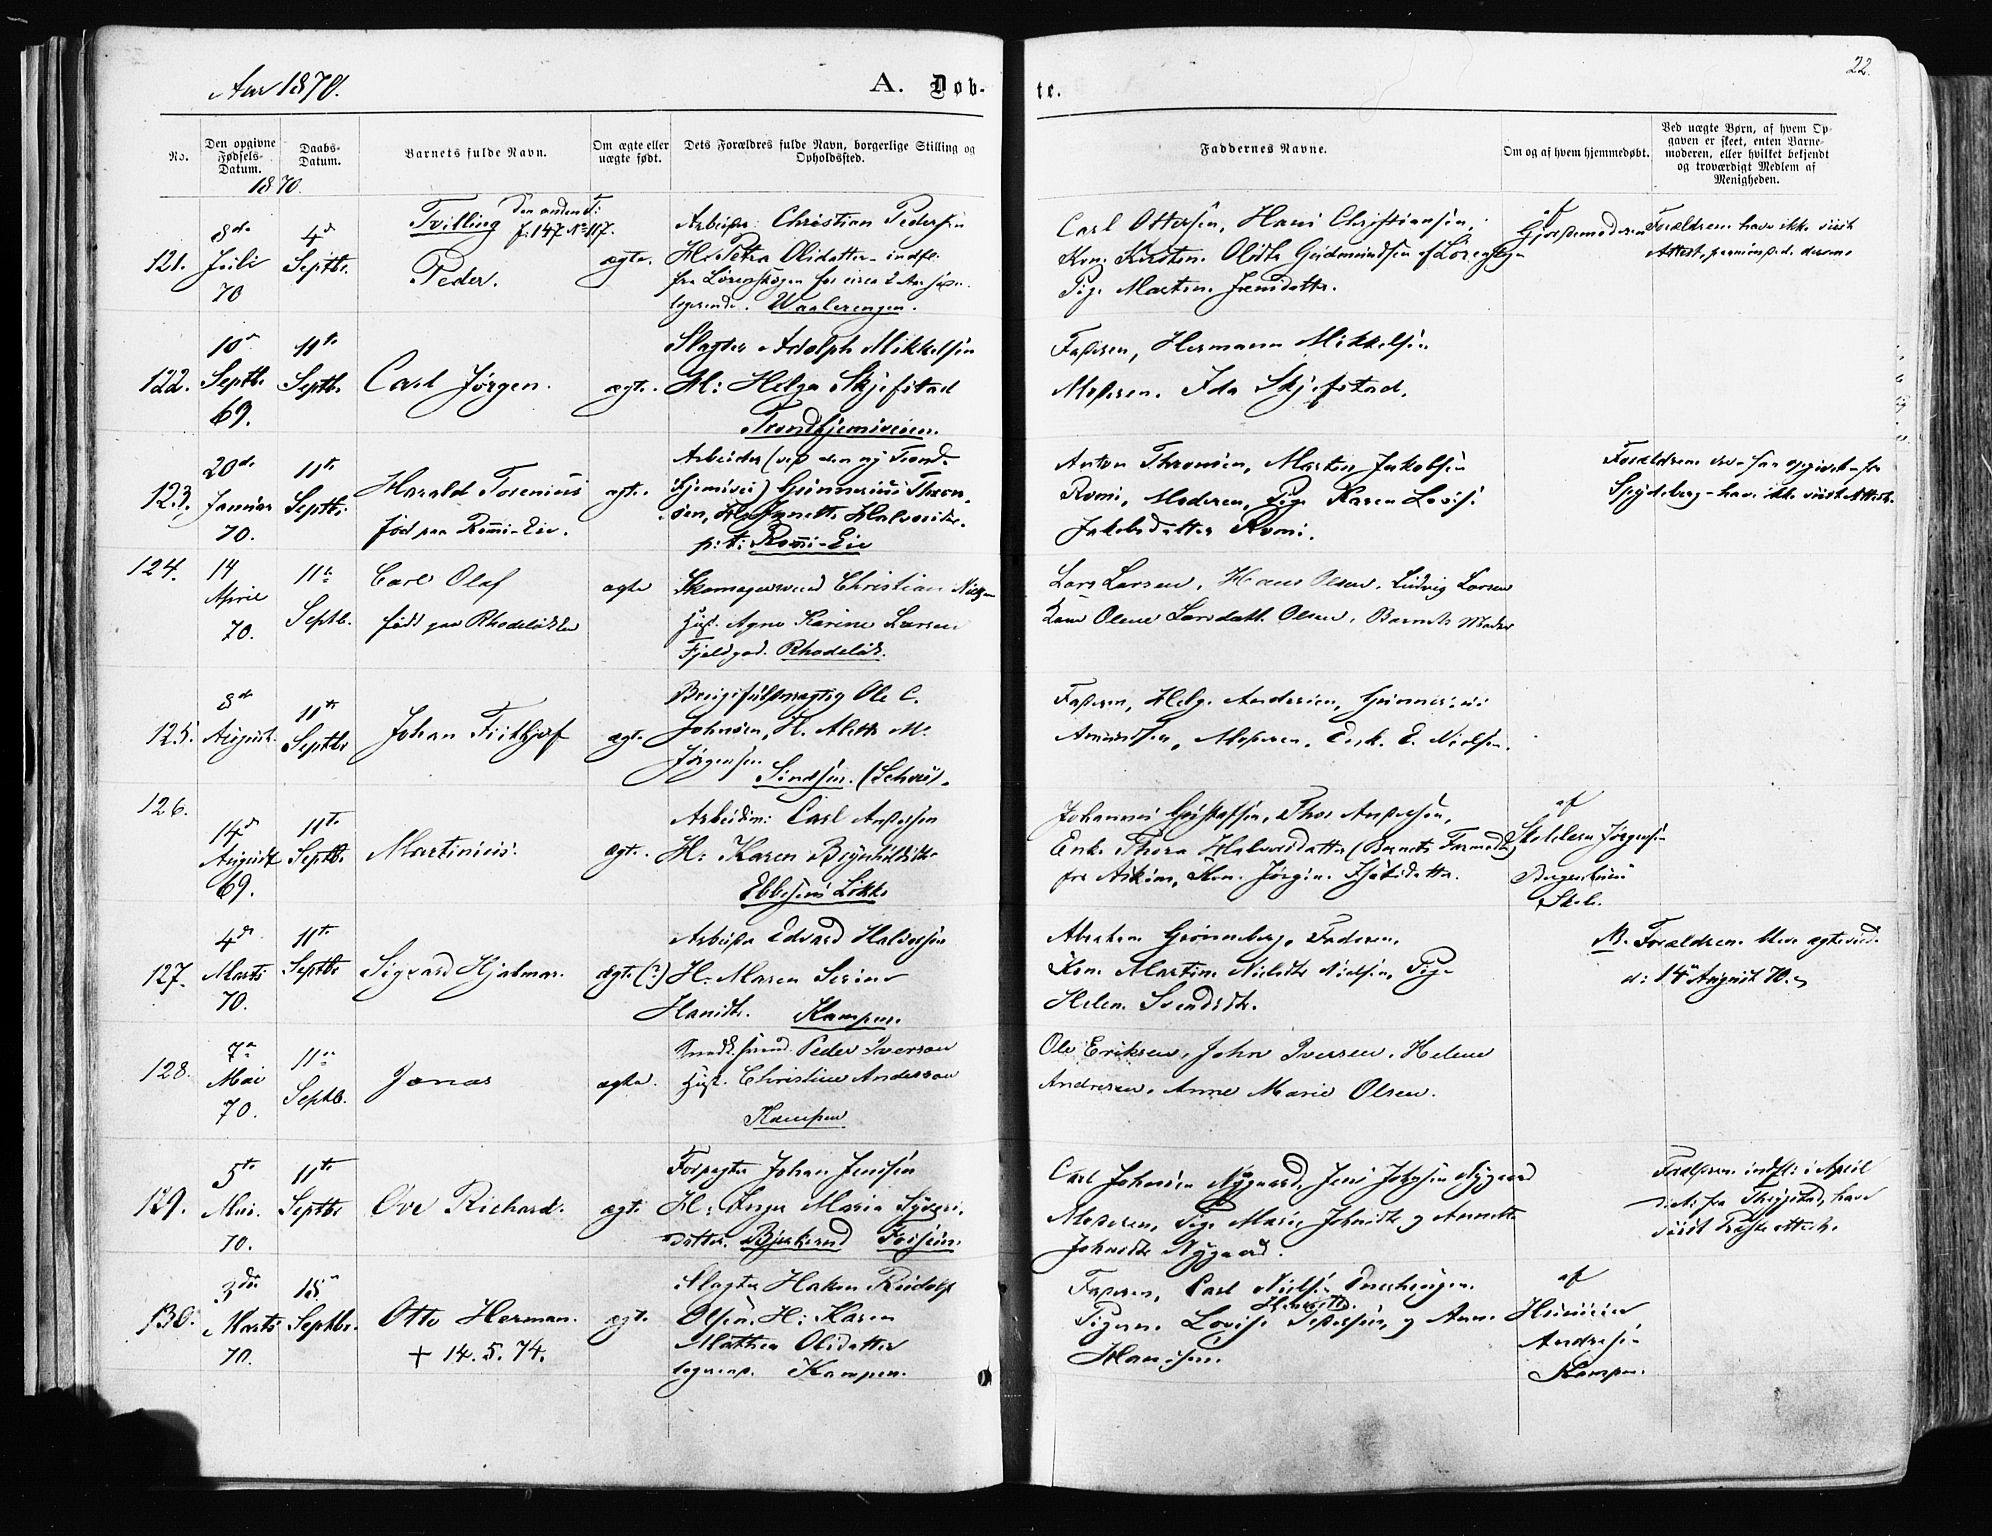 Aar 1870.
A. Døb-
te.
22.
No.
Den opgivne Fødsels-Datum.
Daabs-Datum.
Barnets fulde Navn.
Om ægte eller uægte født.
Dets Forældres fulde Navn, borgerlige Stilling og Opholdssted.
Faddernes Navne.
Om og af hvem hjemmedøbt.
Ved uægte Børn, af hvem Opgaven er skeet, enten Barnemoderen, eller hvilket bekjendt og troværdigt Medlem af Menigheden.
1870.
121.
8de Juli 70
4de Septbr.
Tvilling
Den anden
f: 147 No 117.
Peder.
ægte.
Christian Pedersen
H: Petra Olsdatter indfl:
fra Lørenskogen for circa 2 Aar
logerende. Waalerengen.
Carl Ottersen, Hans Christiansen,
Kon. Kirsten Olsdtr Gudmundsen af
Pige Marten Jensdatter.
af Gjordemoderen
Forældrene have ikke viist
Attest,
122.
10de Septbr. 69.
11te Septbr.
Carl Jørgen.
ægte.
Slagter Adolph Mikkelsen
H: Helga Skjefstad
Trondhjemsveien.
Faderen, Hermann Mikkelsen
Moderen. Ida Skjefstad.
123.
20de Januar 70.
11te Septbr.
Harald Torenius
fød paa Romi-Eie.
ægte.
Arbeider (ved den ny Trond-
hjemsvei) Gunnerius Thron-
sen, Halvorsdtr.
p: t: Romi-Eie
Anton Thronsen, Marten Jakobsen
Romi, Moderen, Pige Karen Lovise
Jakobsdatter Romi.
Forældrene
Spydeberg - have ikke viist Attest.
124.
14 April 70.
11te Septb.
Carl Olaf
født paa Rhodeløkken
ægte
Skomagersvend Christian Nielsen
Hust. Agne Karine Larsen
Fjeldgad. Rhodeløk.
Lars Larsen, Hans Olsen, Ludvig Larsen
Kone Olene Larsdatt. Olsen, Barnets Moder
125.
8de August.
11te Septbr
Johan Frithjof
ægte
Brugsfuldmægtig Ole C.
Johnsen, H. Alette M.
Jørgensen
Sinsen.
Faderen, Helge Andersen, Gunnerius
Amundsen, Moderen, Enk. E. Nielsen.
126.
14de August 69.
11te Septbr.
Martinius.
ægte.
Arbeidsm: Carl Andersen
H: Karen Brynhildsdtr
Ebbesens Løkke
Johannes Gustafsen, Thor Andersen,
Enke Thora Halvorsdatter (Barnets Farmoder)
fra Askim, Kone Jørgine
af Skolelærer Jørgensen
Skole.
127.
4de Marts 70.
11te Septbr
Sigvard Hjalmar.
ægte (?)
Arbeider Edvard Halvorsen
H: Maren Serine
Hansdtr. Kampen.
Abraham Grønneberg, Faderen,
Kone Martine Nielsdtr Nielsen, Pige
Helene Svendsdtr.
N. Forældrene bleve ægteviede
d: 14de August 70.
128.
7de Mai 70.
11te Septb.
Jonas
ægte.
Smedsvend Peder Iversen
Hust. Christine Andersen
Kampen
Ole Eriksen, John Iversen, Helene
Andersen, Anne Marie Olsen.
129.
5te Mai. 70.
11te Septbr
Ove Richard.
ægte.
Forpagter Johan Jensen
H: Inger Maria
datter. Bjerkerud
Carl Johnsen Nygaard, Jens Nygaard
Moderen, Pige Marie Johnsdtr og Annette
Johnsdtr Nygaard.
Forældrene indfl: i April
d.A. fra Trøgstad, have
viist
130.
3die Marts 70.
18de Septbr.
Otto Herman.
+ 14. 5. 74.
ægte.
Slagter Haken Rudolf
Olsen, H: Karen
Mathea Olsdatter
logerend. Kampen.
Faderen, Carl Nielsen
Pigerne Lovise Henriette Pedersen, og Anne
Hansen.
af
Andresen
Kampen.